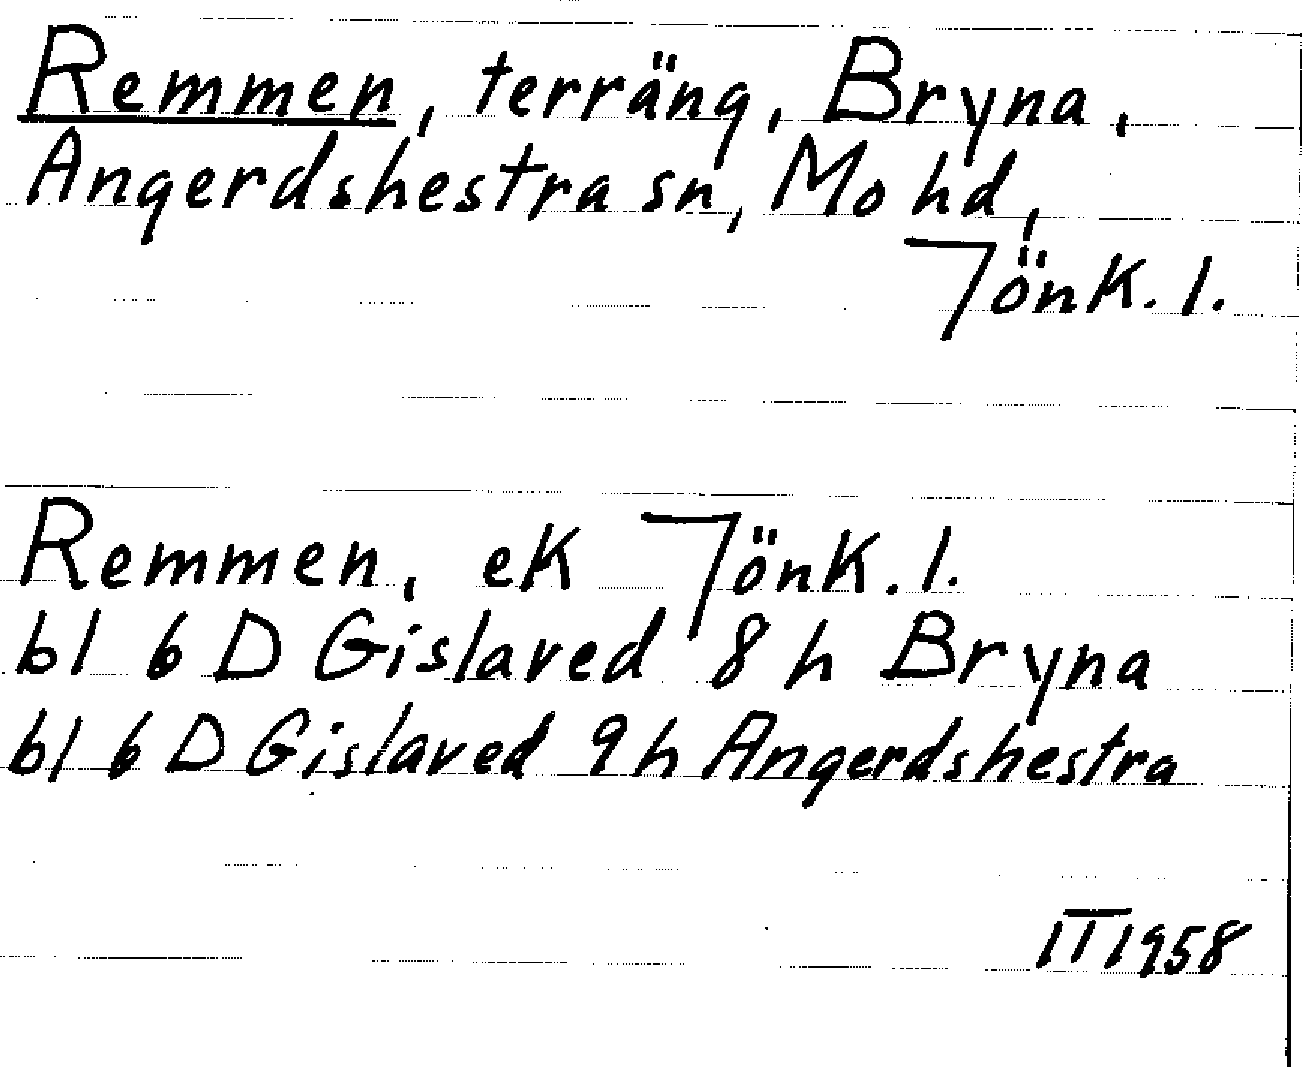 Remmen, terräng, Bryna,
Angerdshestra sn, Mo hd,
Jönk. l.
Remmen, ek Jönk. l.
bl 6 D Gislaved 8 h Bryna
bl 6 D Gislaved 9 h Angerdshestra
IT 1958